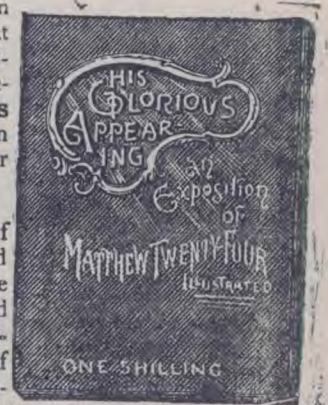 HIS
GLORIOUS
APPEAR-
ING
an
Exposition
of
MATTHEW TWENTY-FOUR
ILLUSTRATED
ONE SHILLING